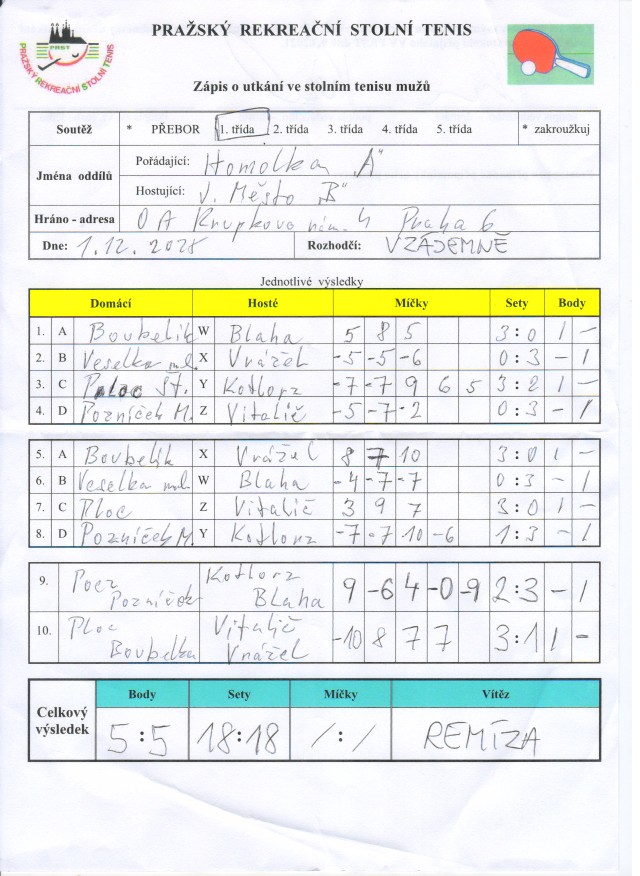 PRAŽSKÝ REKREAČNÍ STOLNÍ TENIS
PRST
PRAŽSKÝ REKREAČNÍ STOLNÍ TENIS
Zápis o utkání ve stolním tenisu mužů
Soutěž * PŘEBOR 1. třída 2. třída 3. třída 4. třída 5. třída * zakroužkuj
Jména oddílů
Pořádající: Homolka "A"
Hostující: J. Město "B"
Hráno - adresa OA Krupkovo nám. 4 Praha 6
Dne: 1.12.2025 Rozhodčí: VZÁJEMNĚ
Jednotlivé výsledky
Domácí Hosté Míčky Sety Body
1. A Boubelík W Blaha 5 8 5 3:0 1 -
2. B Veselka ml. X Vrážel -5 -5 -6 0:3 - 1
3. C Ploc st. Y Kotlorz -7 -7 9 6 5 3:2 1 -
4. D Pozníček M. Z Vitalič -5 -7 -2 0:3 - 1
5. A Boubelík X Vrážel 8 7 10 3:0 1 -
6. B Veselka ml. W Blaha -4 -7 -7 0:3 - 1
7. C Ploc Z Vitalič 3 9 7 3:0 1 -
8. D Pozníček M. Y Kotlorz -7 -7 10 -6 1:3 - 1
9. Pozníček Kotlorz Blaha 9 -6 4 -0 -9 2:3 - 1
10. Ploc Boubelka Vitalič Vrážel -10 8 7 7 3:1 1 -
Celkový výsledek
Body Sety Míčky Vítěz
5:5 18:18 /:/ REMÍZA